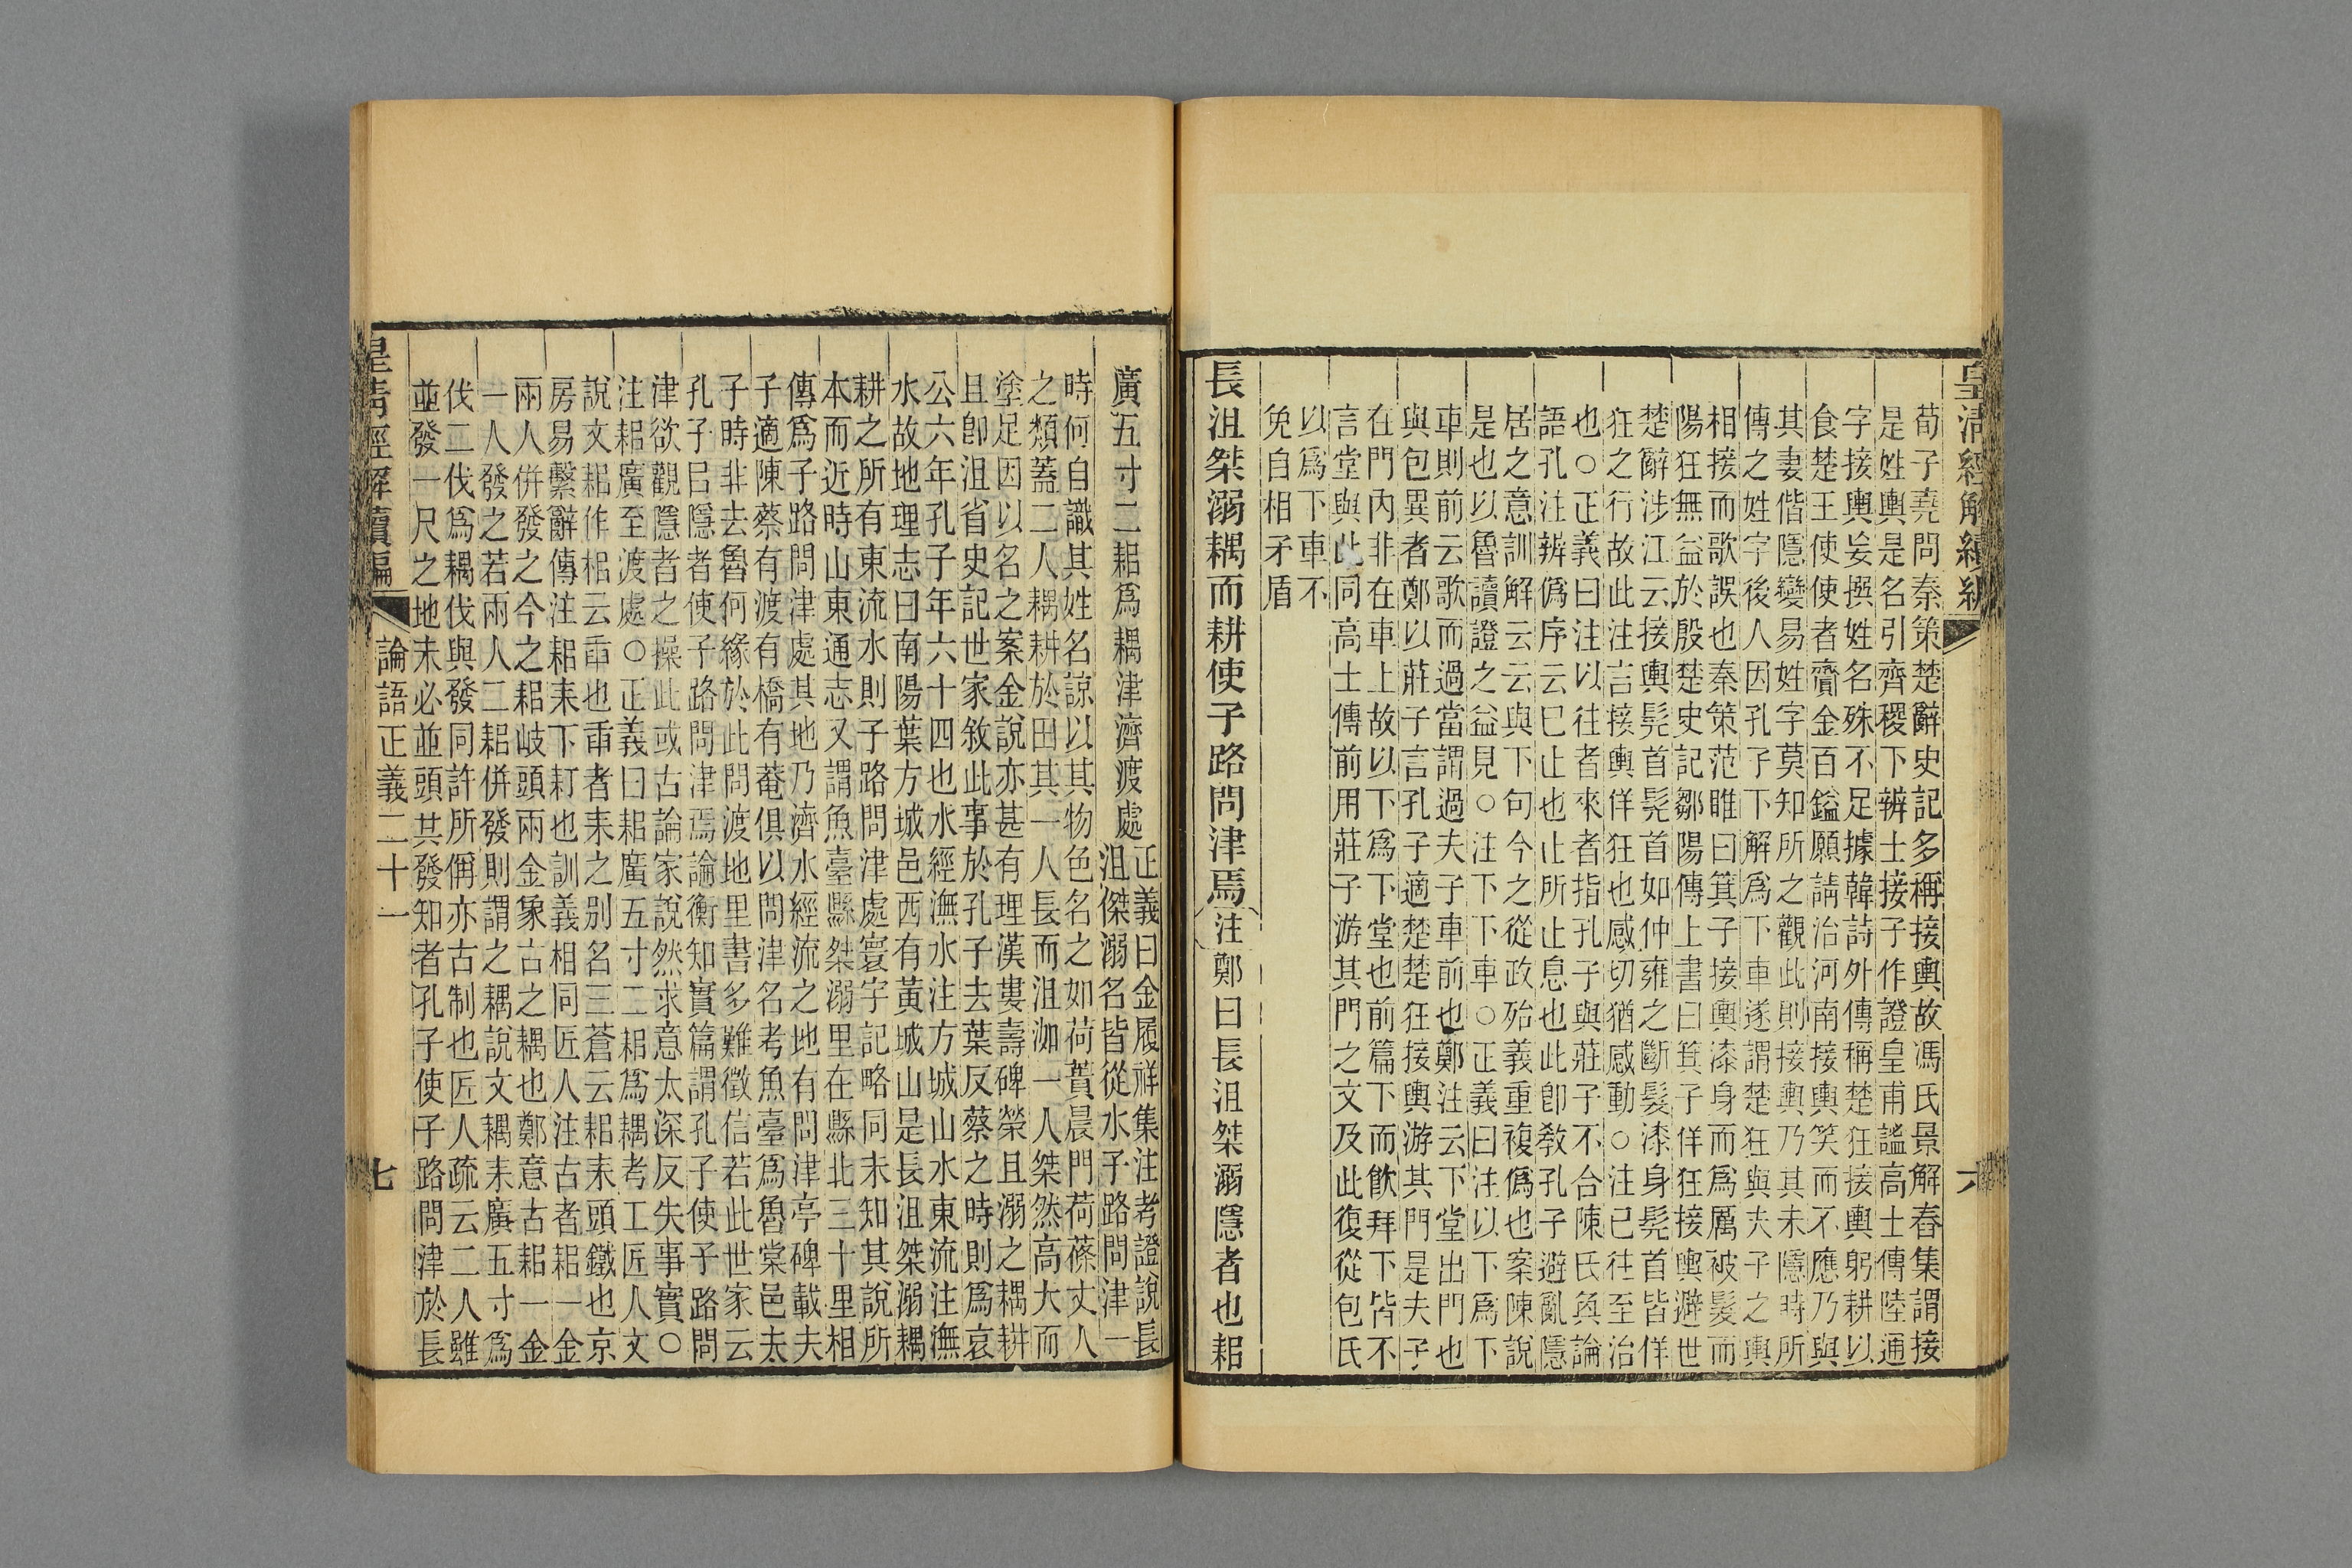 皇清經解續編
六
荀子堯問秦策楚辭史記多稱接輿故馮氏景解舂集謂接
是姓輿是名引齊稷下辨士接子作證皇甫謐高士傳陸通
字接輿妄撰姓名殊不足據韓詩外傳稱楚狂接輿躬耕以
食楚王使使者齎金百鎰願請治河南接輿笑而不應乃與
其妻偕隱變易姓字莫知所之觀此則接輿乃其未隱時所
傳之姓字後人因孔子下解爲下車遂謂楚狂與夫子之輿
相接而歌誤也秦策范睢曰箕子接輿漆身而爲厲被髮而
陽狂無益於殷楚史記鄒陽傳上書曰箕子佯狂接輿避世
楚辭涉江云接輿髡首髡首如仲雍之斷髮漆身髡首皆佯
狂之行故此注言接輿佯狂也感切猶感動○注已往至治
也○正義曰注以往者來者指孔子與莊子不合陳氏奐論
語孔注辨僞序云已止也止所止息也此卽敎孔子避亂隱
居之意訓解云云與下句今之從政殆義重複僞也案陳說
是也以魯讀證之益見○注下下車○正義曰注以下爲下
車則前云歌而過當謂過夫子車前也鄭注云下堂出門也
與包異者鄭以莊子言孔子適楚楚狂接輿游其門是夫子
在門內非在車上故以下爲下堂也前篇下而飮拜下皆不
言堂與此同高士傳前用莊子游其門之文及此復從包氏
以爲下車不
免自相矛盾
長沮桀溺耦而耕使子路問津焉注鄭曰長沮桀溺隱者也耜
廣五寸二耜爲耦津濟渡處正義曰金履祥集注考證說長
沮傑溺名皆從水子路問津一
時何自識其姓名諒以其物色名之如荷蕢晨門荷蓧丈人
之類蓋二人耦耕於田其一人長而沮洳一人桀然高大而
塗足因以名之案金說亦甚有理漢婁壽碑榮且溺之耦耕
且卽沮省史記世家敘此事於孔子去葉反蔡之時則爲哀
公六年孔子年六十四也水經潕水注方城山水東流注潕
水故地理志曰南陽葉方城邑西有黃城山是長沮桀溺耦
耕之所有東流水則子路問津處寰宇記略同未知其說所
本而近時山東通志又謂魚臺縣桀溺里在縣北三十里相
傳爲子路問津處其地乃濟水經流之地有問津亭碑載夫
子適陳蔡有渡有橋有菴俱以問津名考魚臺爲魯棠邑夫
子時非去魯何緣於此問渡地里書多難徵信若此世家云
孔子㠯隱者使子路問津焉論衡知實篇謂孔子使子路問
津欲觀隱者之操此或古論家說然求意太深反失事實○
注耜廣至渡處○正義曰耜廣五寸二耜爲耦考工匠人文
說文耜作梠云臿也臿者耒之別名三蒼云耜耒頭鐵也京
房易繫辭傳注耜耒下耓也訓義相同匠人注古者耜一金
兩人倂發之今之耜岐頭兩金象古之耦也鄭意古耜一金
一人發之若兩人二耜倂發則謂之耦說文耦耒廣五寸爲
伐二伐爲耦伐與發同許所偁亦古制也匠人疏云二人雖
並發一尺之地未必並頭共發知者孔子使子路問津於長
皇淸經解續編
論語正義二十一
七